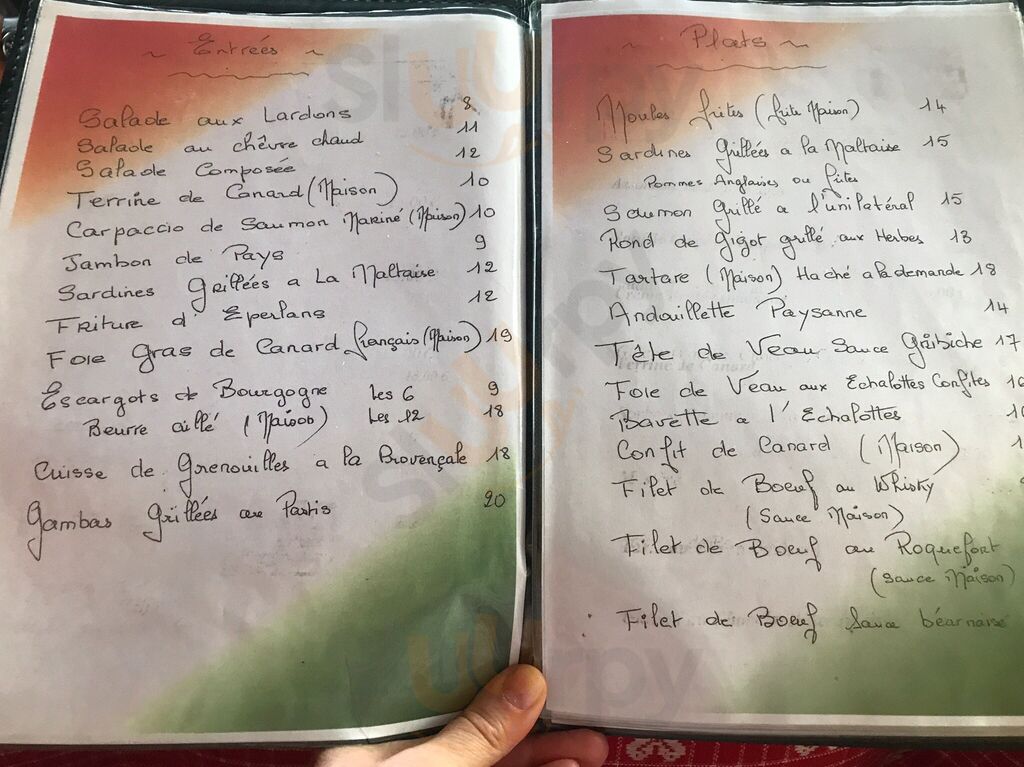 ~ Entrées ~
Salade aux Lardons 8
Salade au chêvre chaud 11
Salade Composée 12
Terrine de Canard (Maison) 10
Carpaccio de Saumon Mariné (Maison) 10
Jambon de Pays 9
Sardines Grillées a La Maltaise 12
Friture d'Eperlans 12
Foie Gras de Canard français (Maison) 19
Escargots de Bourgogne Les 6 9
Beurre aillé (Maison) Les 12 18
Cuisse de Grenouilles a la Provençale 18
Gambas Grillées au Pastis 20
~ Plats ~
Moules frites (frite Maison) 14
Sardines Grillées a la Maltaise 15
Pommes Anglaises ou frites
Saumon Grillé a l'unilatéral 15
Rond de Gigot grillé aux Herbes 13
Tartare (Maison) Haché a la demande 18
Andouillette Paysanne 14
Tête de Veau Sauce Gribiche 17
Foie de Veau aux Echalottes Confites
Bavette a l'Echalottes
Confit de Canard (Maison)
Filet de Boeuf au Whisky
(Sauce Maison)
Filet de Boeuf au Roquefort
(Sauce Maison)
Filet de Boeuf Sauce béarnaise
sluurpy